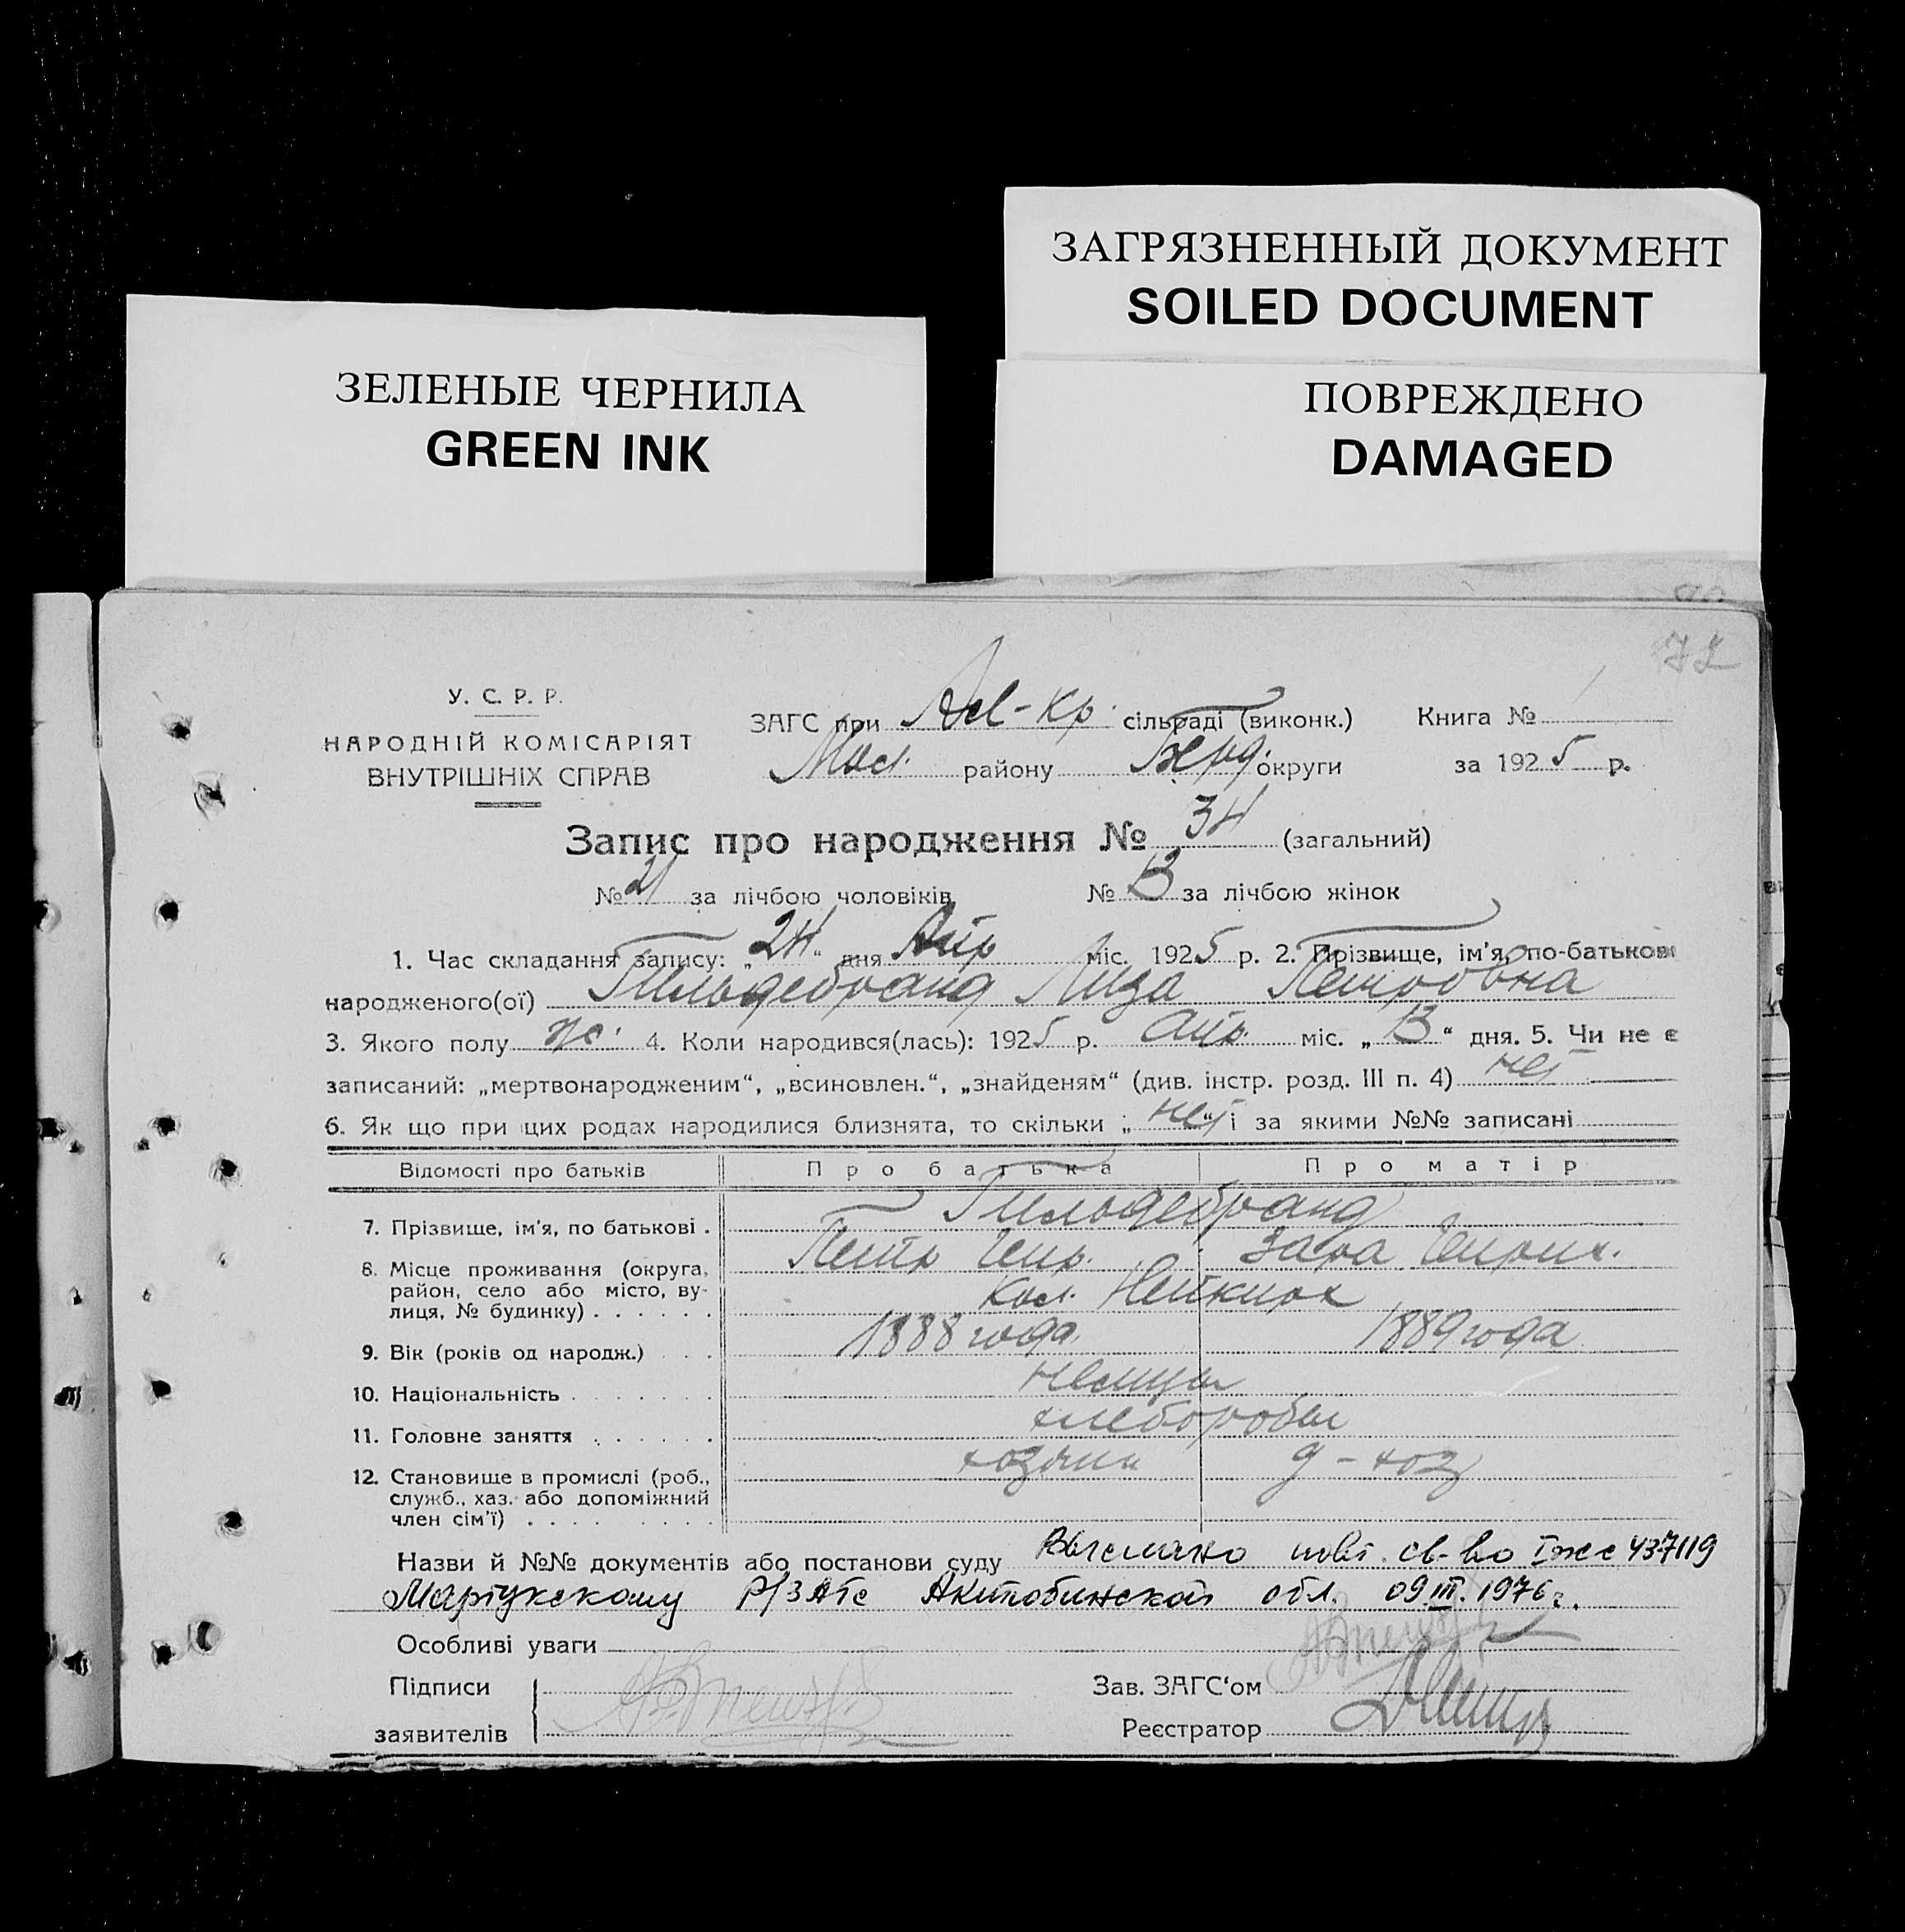 ЗАГРЯЗНЕННЫЙ ДОКУМЕНТ
SOILED DOCUMENT
ЗЕЛЕНЫЕ ЧЕРНИЛА
GREEN INK
ПОВРЕЖДЕНО
DAMAGED
У. С. Р. Р.
НАРОДНІЙ КОМІСАРІЯТ
ВНУТРІШНІХ СПРАВ
ЗАГС при сільраді (виконк.) Книга №
району округи за 1925 р.
Запис про народження № 34 (загальний)
№ 21 за лічбою чоловіків № 13 за лічбою жінок
1. Час складання запису: „24“ дня Апр міс. 1925 р. 2. Прізвище, ім'я, по-батькові
народженого(ої) Гильдебранд Лиза Петровна
3. Якого полу ж. 4. Коли народився(лась): 1925 р. апр. міс. „13“ дня. 5. Чи не є
записаний: „мертвонародженим“, „всиновлен.“, „знайденям“ (див. інстр. розд. III п. 4) нет
6. Як що при цих родах народилися близнята, то скільки „нет“ і за якими №№ записані
Відомості про батьків Про батька Про матір
7. Прізвище, ім'я, по батькові . Гильдебранд
Петр Генр. Зара Генрих.
8. Місце проживання (округа, район, село або місто, вулиця, № будинку) . . . . . . Кол. Нейкирх
9. Вік (років од народж.) . . . 1888 года 1889 года
10. Національність . . . . . . . немцы
11. Головне заняття . . . . . . хлеборобы
12. Становище в промислі (роб., служб., хаз. або допоміжний член сім'ї) . . . . . . . . хозяин д-хоз
Назви й №№ документів або постанови суду Выслано повт. св-во 437119
Мартукскому Р/ЗАГС Актюбинской обл. 09.III.1976г.
Особливі уваги
Підписи Зав. ЗАГС‘ом
заявителів Реєстратор